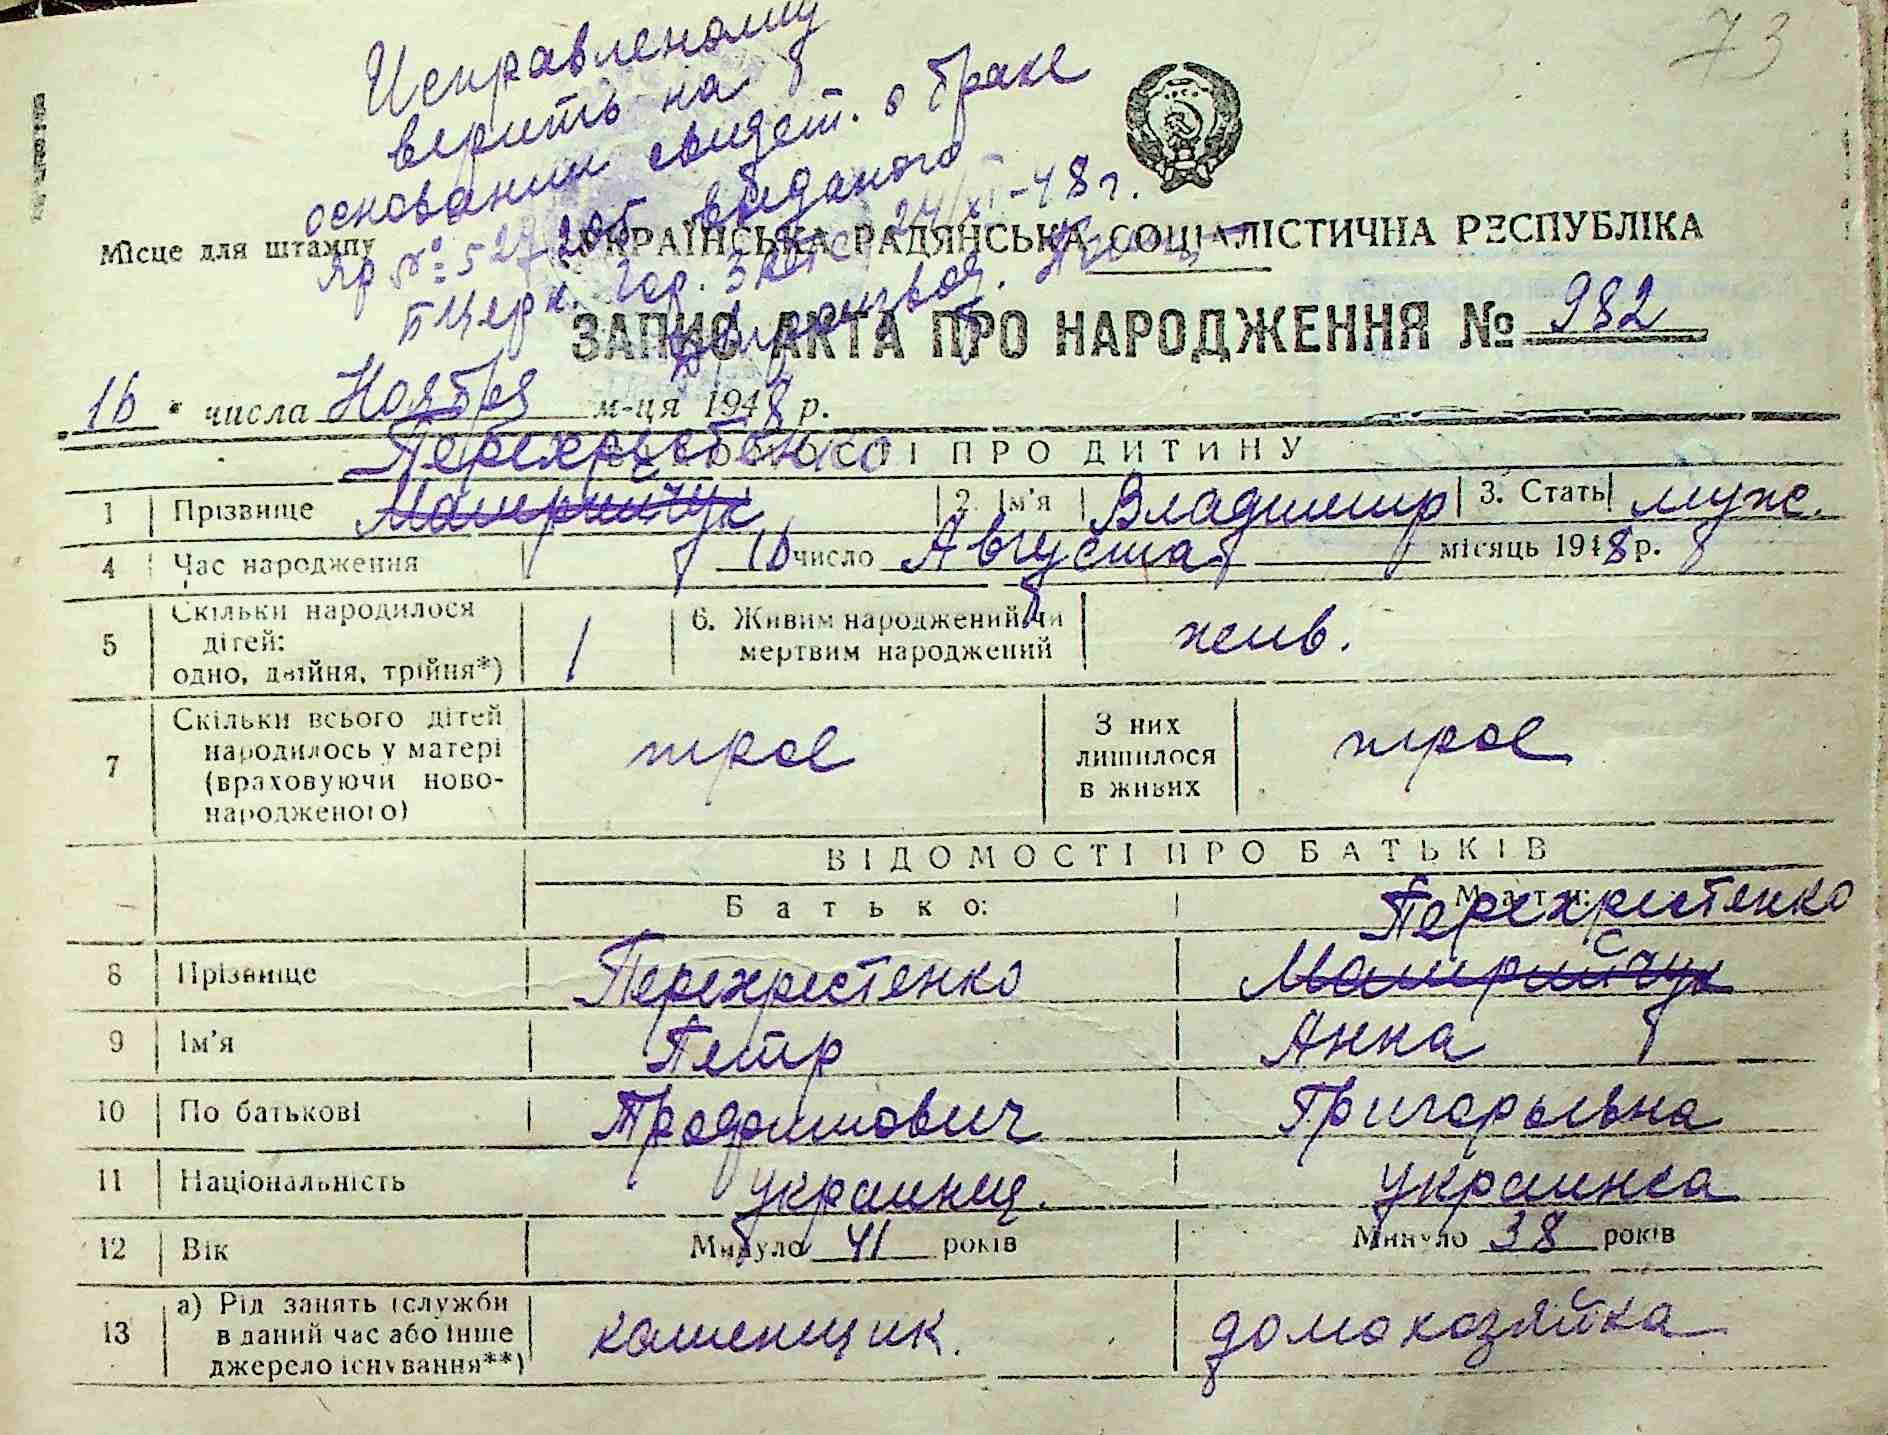 73
Исправленому
верить на
основании свидет. о браке
выданого
Б Церк. гор. ЗАГС 24/XI-48 г.
Місце для штампу
УКРАЇНСЬКА РАДЯНСЬКА СОЦІАЛІСТИЧНА РЕСПУБЛІКА
ЗАПИС АКТА ПРО НАРОДЖЕННЯ № 982
16 числа Ноября м-ця 1948 р.
ВІДОМОСТІ ПРО ДИТИНУ
Перехрестенко
1 Прізвище Матрийчук 2. Ім'я Владимир 3. Стать муж.
4 Час народження 16 число Августа місяць 1948 р.
5 Скільки народилося дітей: одно, двійня, трійня*) 1 6. Живим народжений чи мертвим народжений жив.
7 Скільки всього дітей народилось у матері (враховуючи ново-народженого) трое З них лишилося в живих трое
ВІДОМОСТІ ПРО БАТЬКІВ
Батько: Мати:
Перехрестенко
8 Прізвище Перехрестенко Матрийчук
9 Ім'я Петр Анна
10 По батькові Григорьевна
11 Національність украинец. украинка
12 Вік Минуло 41 років Минуло 38 років
13 а) Рід занять (служби в даний час або інше джерело існування**) каменщик. домохозяйка